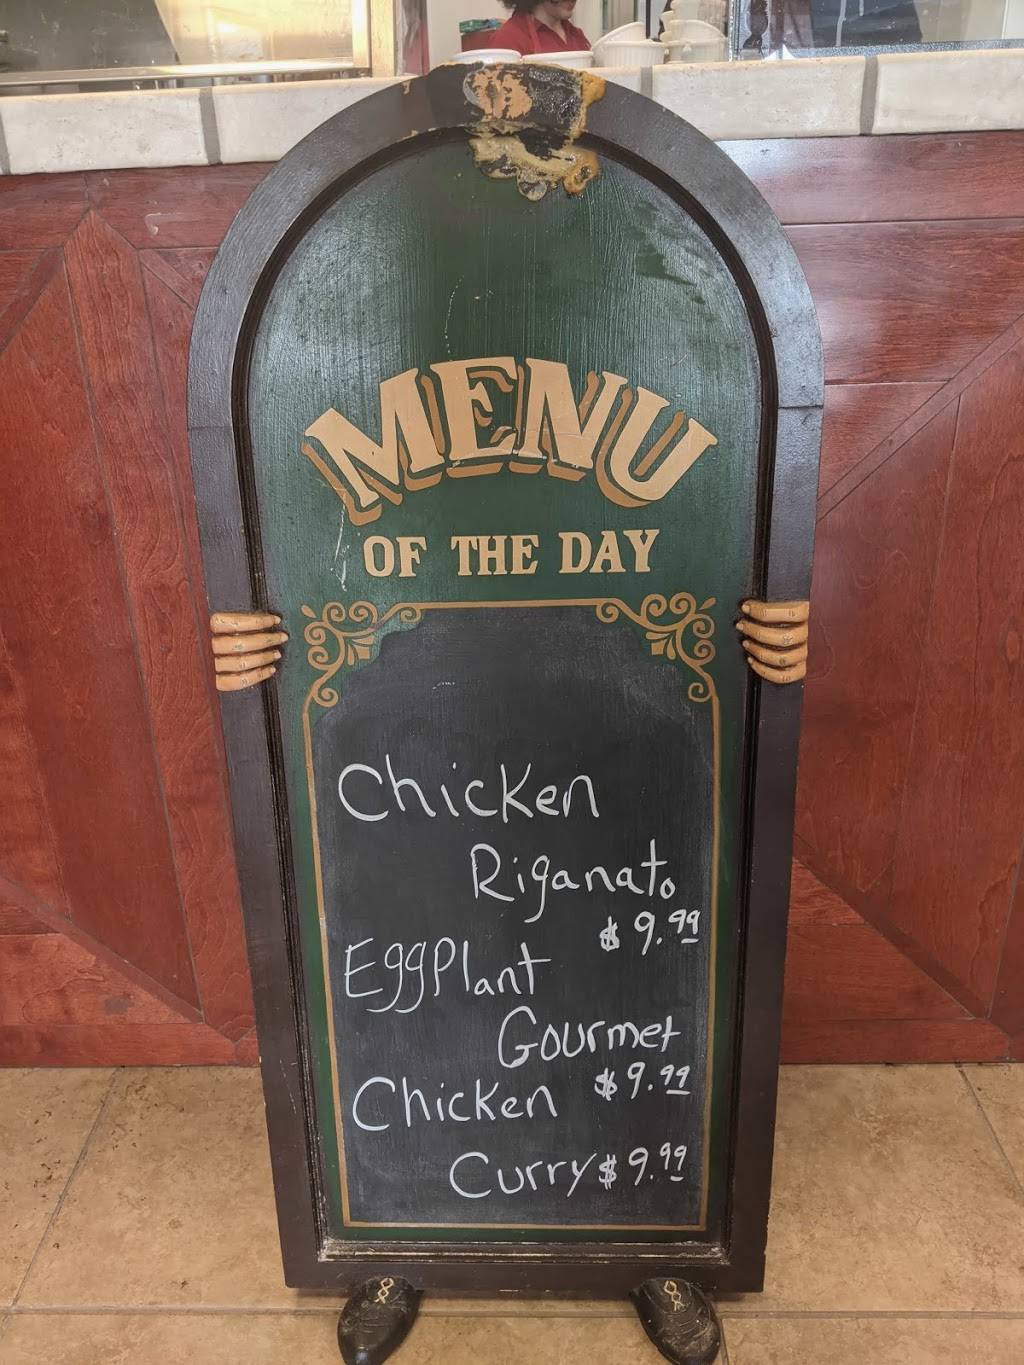 MENU
OF THE DAY
Chicken
Riganato
$9.99
EggPlant
Gourmet
$9.99
Chicken
Curry $9.99